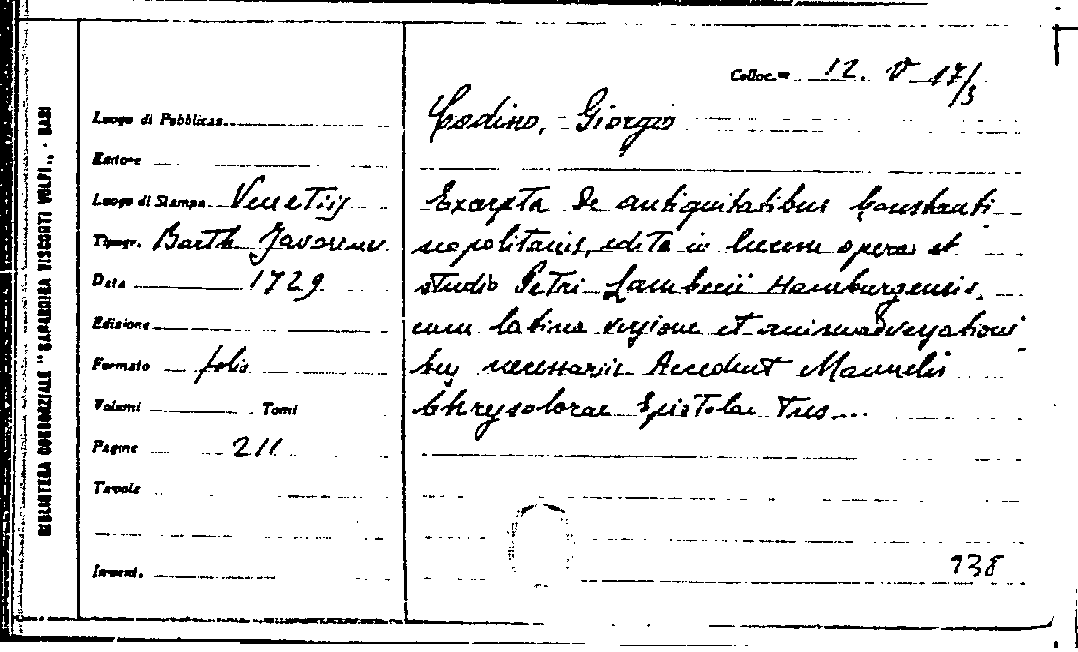 BIBLIOTECA CONSORZIALE "SAGARRIGA VISCONTI VOLPI" - BARI
Colloc.ne 12. V 17/3
Luogo di Pubblicaz.
Editore
Luogo di Stampa Venetiis
Tipogr. Barth. Javarina
Data 1729
Edizione
Formato folio
Volumi Tomi
Pagine 211
Tavole
Invent.
Codino, Giorgio
Excerpta De antiquitatibus Constanti
nopolitanis, edita in lucem opera et
studio Petri Lambecii Hamburgensis,
cum latina versione et animadversioni
bus necessariis Accedunt Manuelis
Chrysolorae Epistolae Tres...
938